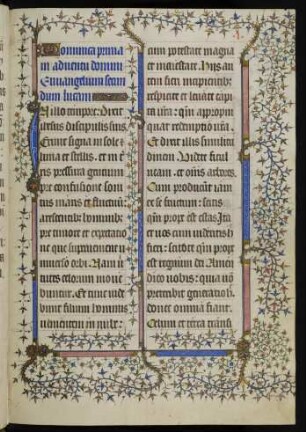 Dominica prima
in adventu domini
Evuangelium secun
dum lucam
N illo tempore: Dixit
ihesus discipulis suis
Erunt signa in sole ⁊
luna et stellis. et in t̄
ris pressura gentium
pre confusione soni
tus maris et fluctuū:
arescentibȝ hominibȝ
pre timore et expectatio
ne que supervenient u
niverso orbi. Nam ū
tutes celorum move
buntur. Et tunc vide
bunt filium hominis
venientem in nube:
cum potestate magna
et maiestate. Hiis an
tem fieri incipientibȝ:
respicite et levate capi
ta v̄ra: q̄m appropin
quat redemptio v̄ra.
Et dixit illis similitu
dinem. Videte ficul
neam. et om̄s arbores.
Cum producunt iam
ex se fructum: scitis
q̄m prope est estas. Ita
et vos cum videritis h̄
fieri: scitote q̄m prope
est regnum dei. Amen
dico vobis: quia nō
preteribit generatio h̄:
donec omnia fiant.
Celum et terra transi